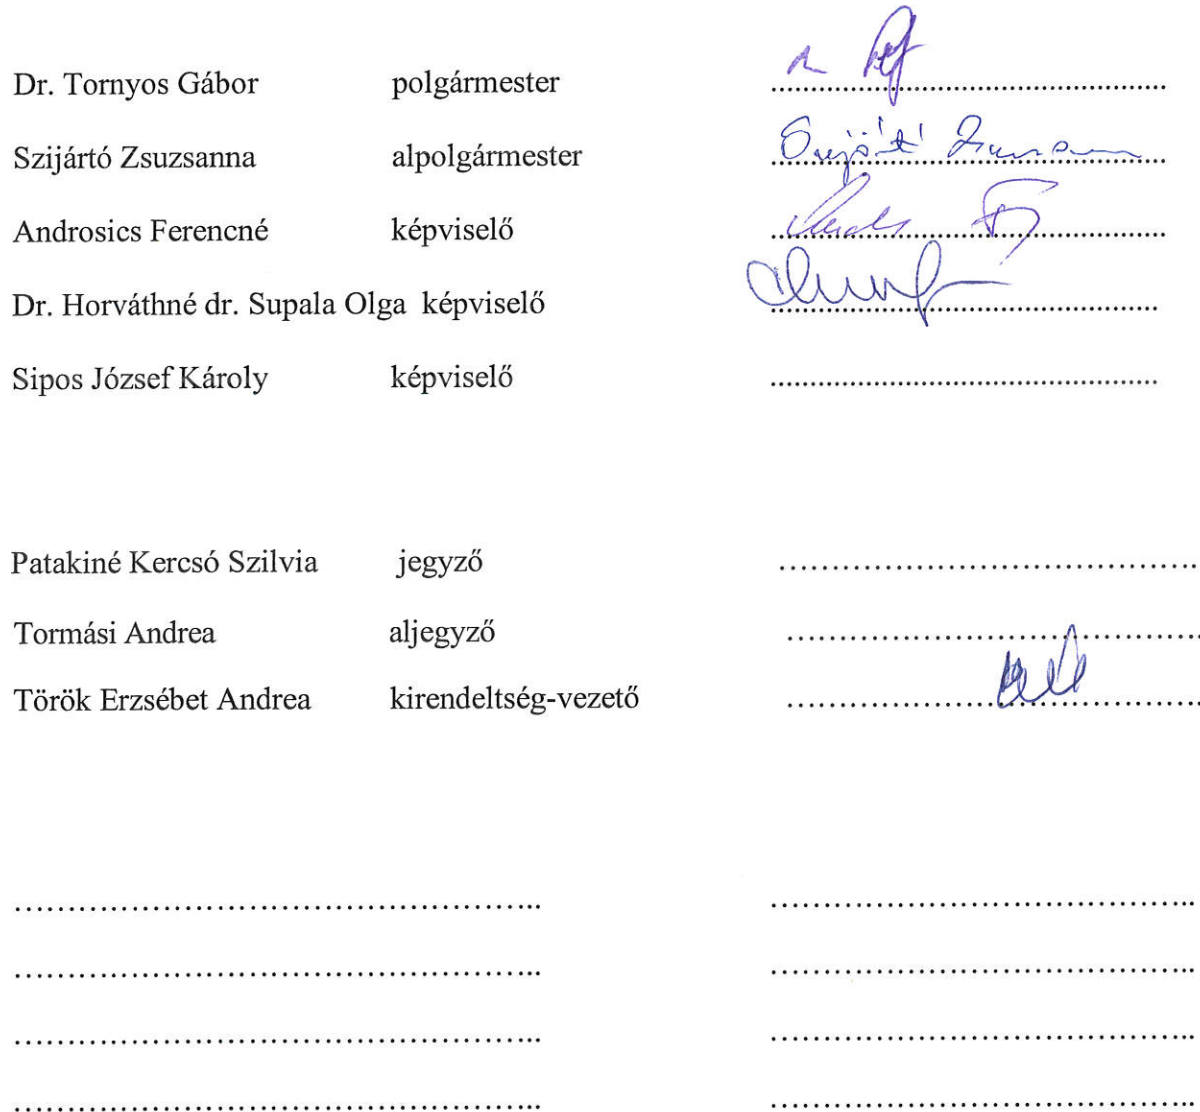 Dr. Tornyos Gábor polgármester
Szijártó Zsuzsanna alpolgármester Szijártó Zsuzsanna
Androsics Ferencné képviselő
Dr. Horváthné dr. Supala Olga képviselő
Sipos József Károly képviselő
Patakiné Kercsó Szilvia jegyző
Tormási Andrea aljegyző
Török Erzsébet Andrea kirendeltség-vezető